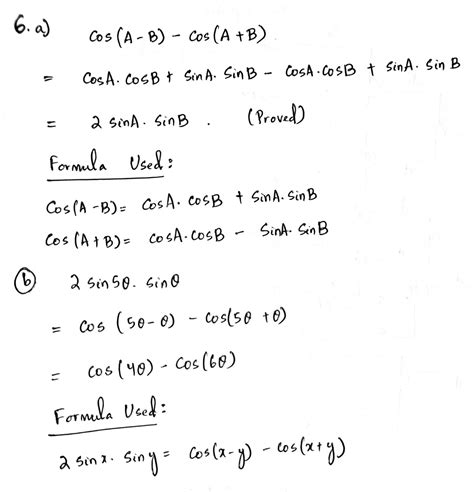 6. a) cos(A - B) - cos(A + B)
= cosA. cosB + sinA. sinB - cosA.cosB + sinA. sin B
= 2 sinA. sinB . (Proved)
Formula Used:
Cos(A - B) = cosA. cosB + sinA. sinB
Cos (A + B) = cosA.cosB - sinA. sinB
(b) 2 sin5θ. sinθ
= cos (5θ-θ) - cos(5θ +θ)
= cos(4θ) - cos(6θ)
Formula Used:
2 sin x. sin y = cos(x-y) - cos(x+y)